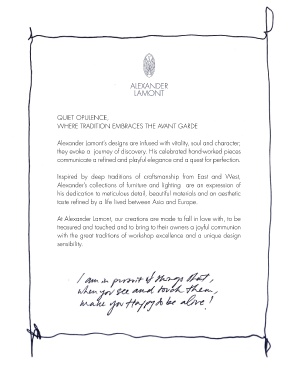 ALEXANDER
LAMONT
QUIET OPULENCE,
WHERE TRADITION EMBRACES THE AVANT GARDE
Alexander Lamont's designs are infused with vitality, soul and character;
they evoke a journey of discovery. His celebrated hand-worked pieces
communicate a refined and playful elegance and a quest for perfection.
Inspired by deep traditions of craftsmanship from East and West,
Alexander's collections of furniture and lighting are an expression of
his dedication to meticulous detail, beautiful materials and an aesthetic
taste refined by a life lived between Asia and Europe.
At Alexander Lamont, our creations are made to fall in love with, to be
treasured and touched and to bring to their owners a joyful communion
with the great traditions of workshop excellence and a unique design
sensibility.
I am in pursuit of things that,
when you see and touch them,
make you Happy to be alive!